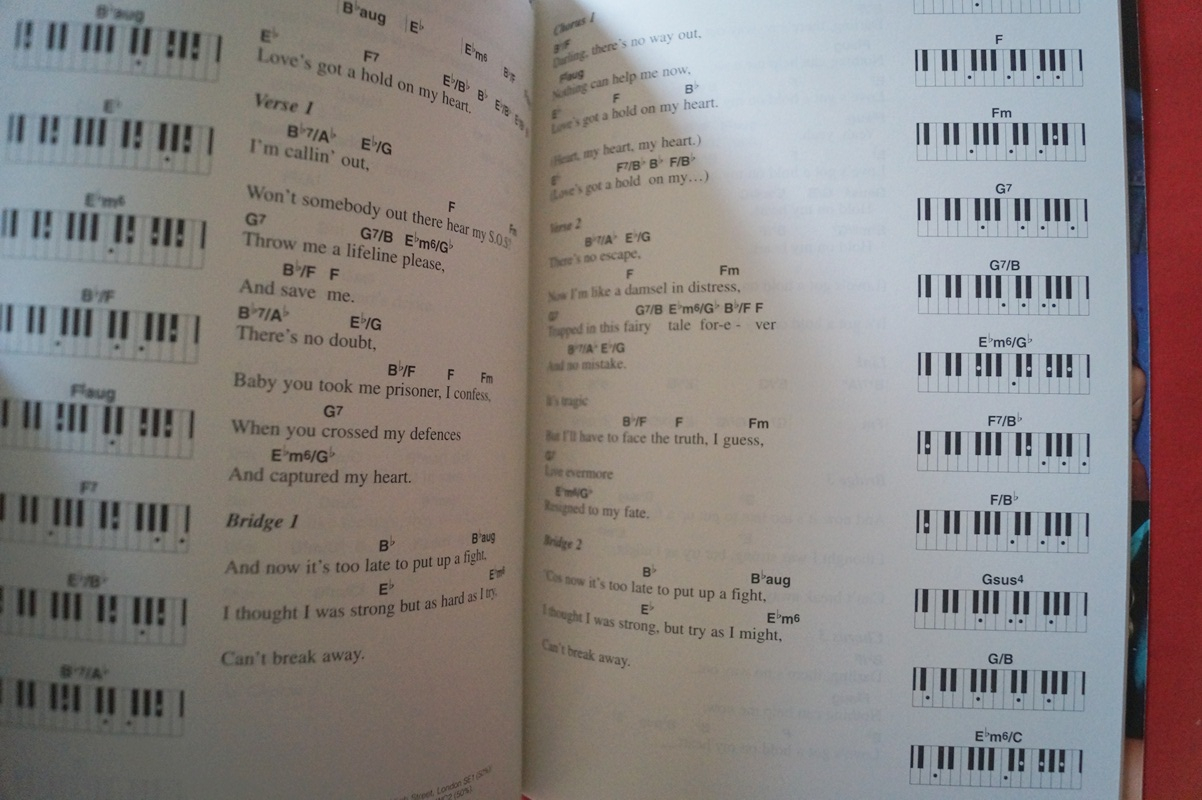 B♭aug
E♭
E♭m6
B♭/F
F♯aug
F7
E♭/B♭
B♭7/A♭
B♭aug E♭ E♭m6 B♭/F
E♭ F7 E♭/B♭ B♭ E♭/B♭
Love's got a hold on my heart.
Verse 1
B♭7/A♭ E♭/G
I'm callin' out,
F Fm
Won't somebody out there hear my S.O.S?
G7 G7/B E♭m6/G♭
Throw me a lifeline please,
B♭/F F
And save me.
B♭7/A♭ E♭/G
There's no doubt,
B♭/F F Fm
Baby you took me prisoner, I confess,
G7
When you crossed my defences
E♭m6/G♭
And captured my heart.
Bridge 1
B♭ B♭aug
And now it's too late to put up a fight,
E♭ E♭m6
I thought I was strong but as hard as I try,
Can't break away.
Street, London SE1 (50%)
(50%).
Chorus 1
B♭/F
Darling, there's no way out,
F♯aug
Nothing can help me now,
E♭ F B♭
Love's got a hold on my heart.
(Heart, my heart, my heart.)
E♭ F7/B♭ B♭ F/B♭
(Love's got a hold on my...)
Verse 2
B♭7/A♭ E♭/G
There's no escape,
F Fm
Now I'm like a damsel in distress,
G7 G7/B E♭m6/G♭ B♭/F F
Trapped in this fairy tale for-e - ver
B♭7/A♭ E♭/G
And no mistake.
It's tragic
B♭/F F Fm
But I'll have to face the truth, I guess,
G7
Love evermore
E♭m6/G♭
Resigned to my fate.
Bridge 2
B♭ B♭aug
'Cos now it's too late to put up a fight,
E♭ E♭m6
I thought I was strong, but try as I might,
Can't break away.
F
Fm
G7
G7/B
E♭m6/G♭
F7/B♭
F/B♭
Gsus4
G/B
E♭m6/C